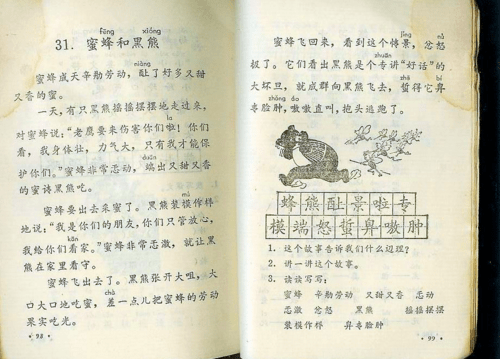 fēng xióng
31. 蜜蜂和黑熊
niàng
蜜蜂成天辛勤劳动，酿了好多又甜
又香的蜜。
一天，有只黑熊摇摇摆摆地走过来，
la
对蜜蜂说：“老鹰要来伤害你们啦！你们
看，我身体壮，力气大，只有我才能保
duān
护你们。”蜜蜂非常感动，端出又甜又香
的蜜请黑熊吃。
mú
蜜蜂要出去采蜜了。黑熊装模作样
地说：“我是你们的朋友，你们只管放心，
kān
我给你们看家。”蜜蜂非常感激，就让黑
熊在家里看守。
蜜蜂飞出去了。黑熊张开大咀，大
chà
口大口地吃蜜，差一点儿把蜜蜂的劳动
果实吃光。
·98·
jǐng nù
蜜蜂飞回来，看到这个情景，忿怒
zhuān
极了。它们看出黑熊是个专讲“好话”的
zhē bí
大坏旦，就成群向黑熊飞去，蜇得它鼻
zhǒng áo
青脸肿，嗷嗷直叫，抱头逃跑了。
蜂熊酿景啦专
模端怒蜇鼻嗷肿
1. 这个故事告诉我们什么道理？
2. 讲一讲这个故事。
3. 读读写写：
蜜蜂 辛勤劳动 又甜又香 感动
感激 忿怒 黑熊 摇摇摆摆
装模作样 鼻青脸肿
·99·